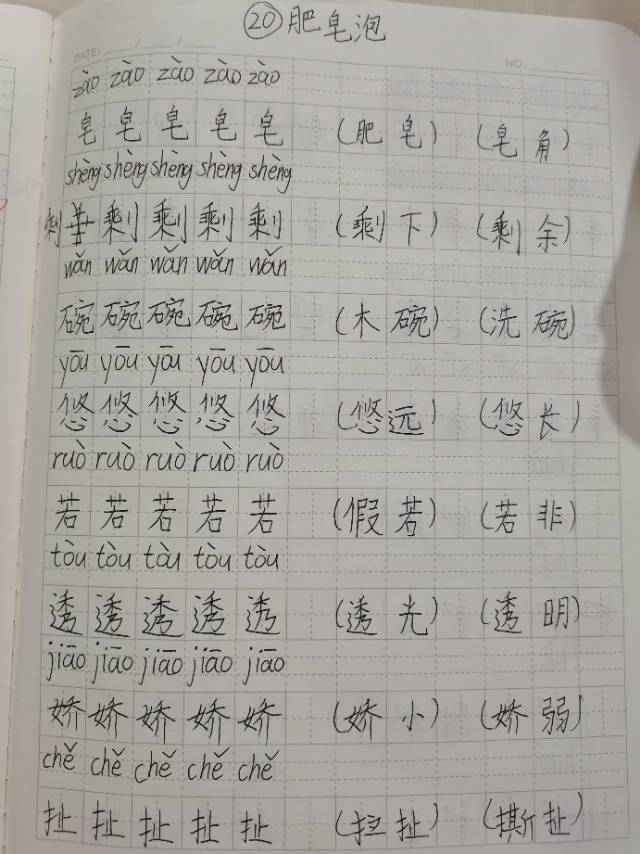 ⑳肥皂泡
DATE: / / NO
zào zào zào zào zào
皂 皂 皂 皂 皂 (肥皂) (皂角)
shèng shèng shèng shèng shèng
剩 剩 剩 剩 (剩下) (剩余)
wǎn wǎn wǎn wǎn wǎn
碗 碗 碗 碗 碗 (木碗) (洗碗)
yōu yōu yōu yōu yōu
悠 悠 悠 悠 悠 (悠远) (悠长)
ruò ruò ruò ruò ruò
若 若 若 若 若 (假若) (若非)
tòu tòu tòu tòu tòu
透 透 透 透 透 (透光) (透明)
jiāo jiāo jiāo jiāo jiāo
娇 娇 娇 娇 娇 (娇小) (娇弱)
chě chě chě chě chě
扯 扯 扯 扯 扯 (拉扯) (撕扯)